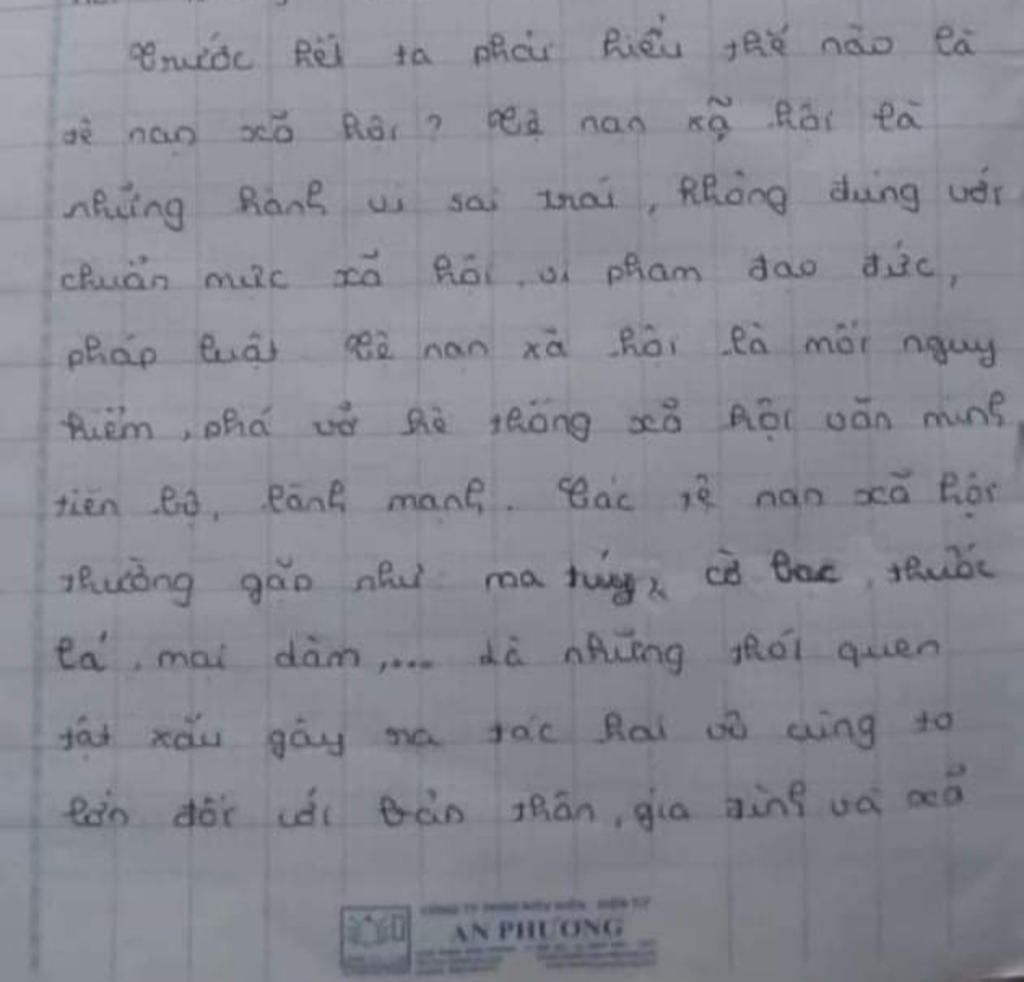 Trước hết ta phải hiểu thế nào là
tệ nạn xã hội? Tệ nạn xã hội là
những hành vi sai trái, không đúng với
chuẩn mực xã hội, vi phạm đạo đức,
pháp luật Tệ nạn xã hội là mối nguy
hiểm, phá vỡ hệ thống xã hội văn minh
tiến bộ, lành mạnh. Các tệ nạn xã hội
thường gặp như ma túy, cờ bạc, thuốc
lá, mại dâm,... là những thói quen
tật xấu gây ra tác hại vô cùng to
lớn đối với bản thân, gia đình và xã
AN PHƯƠNG